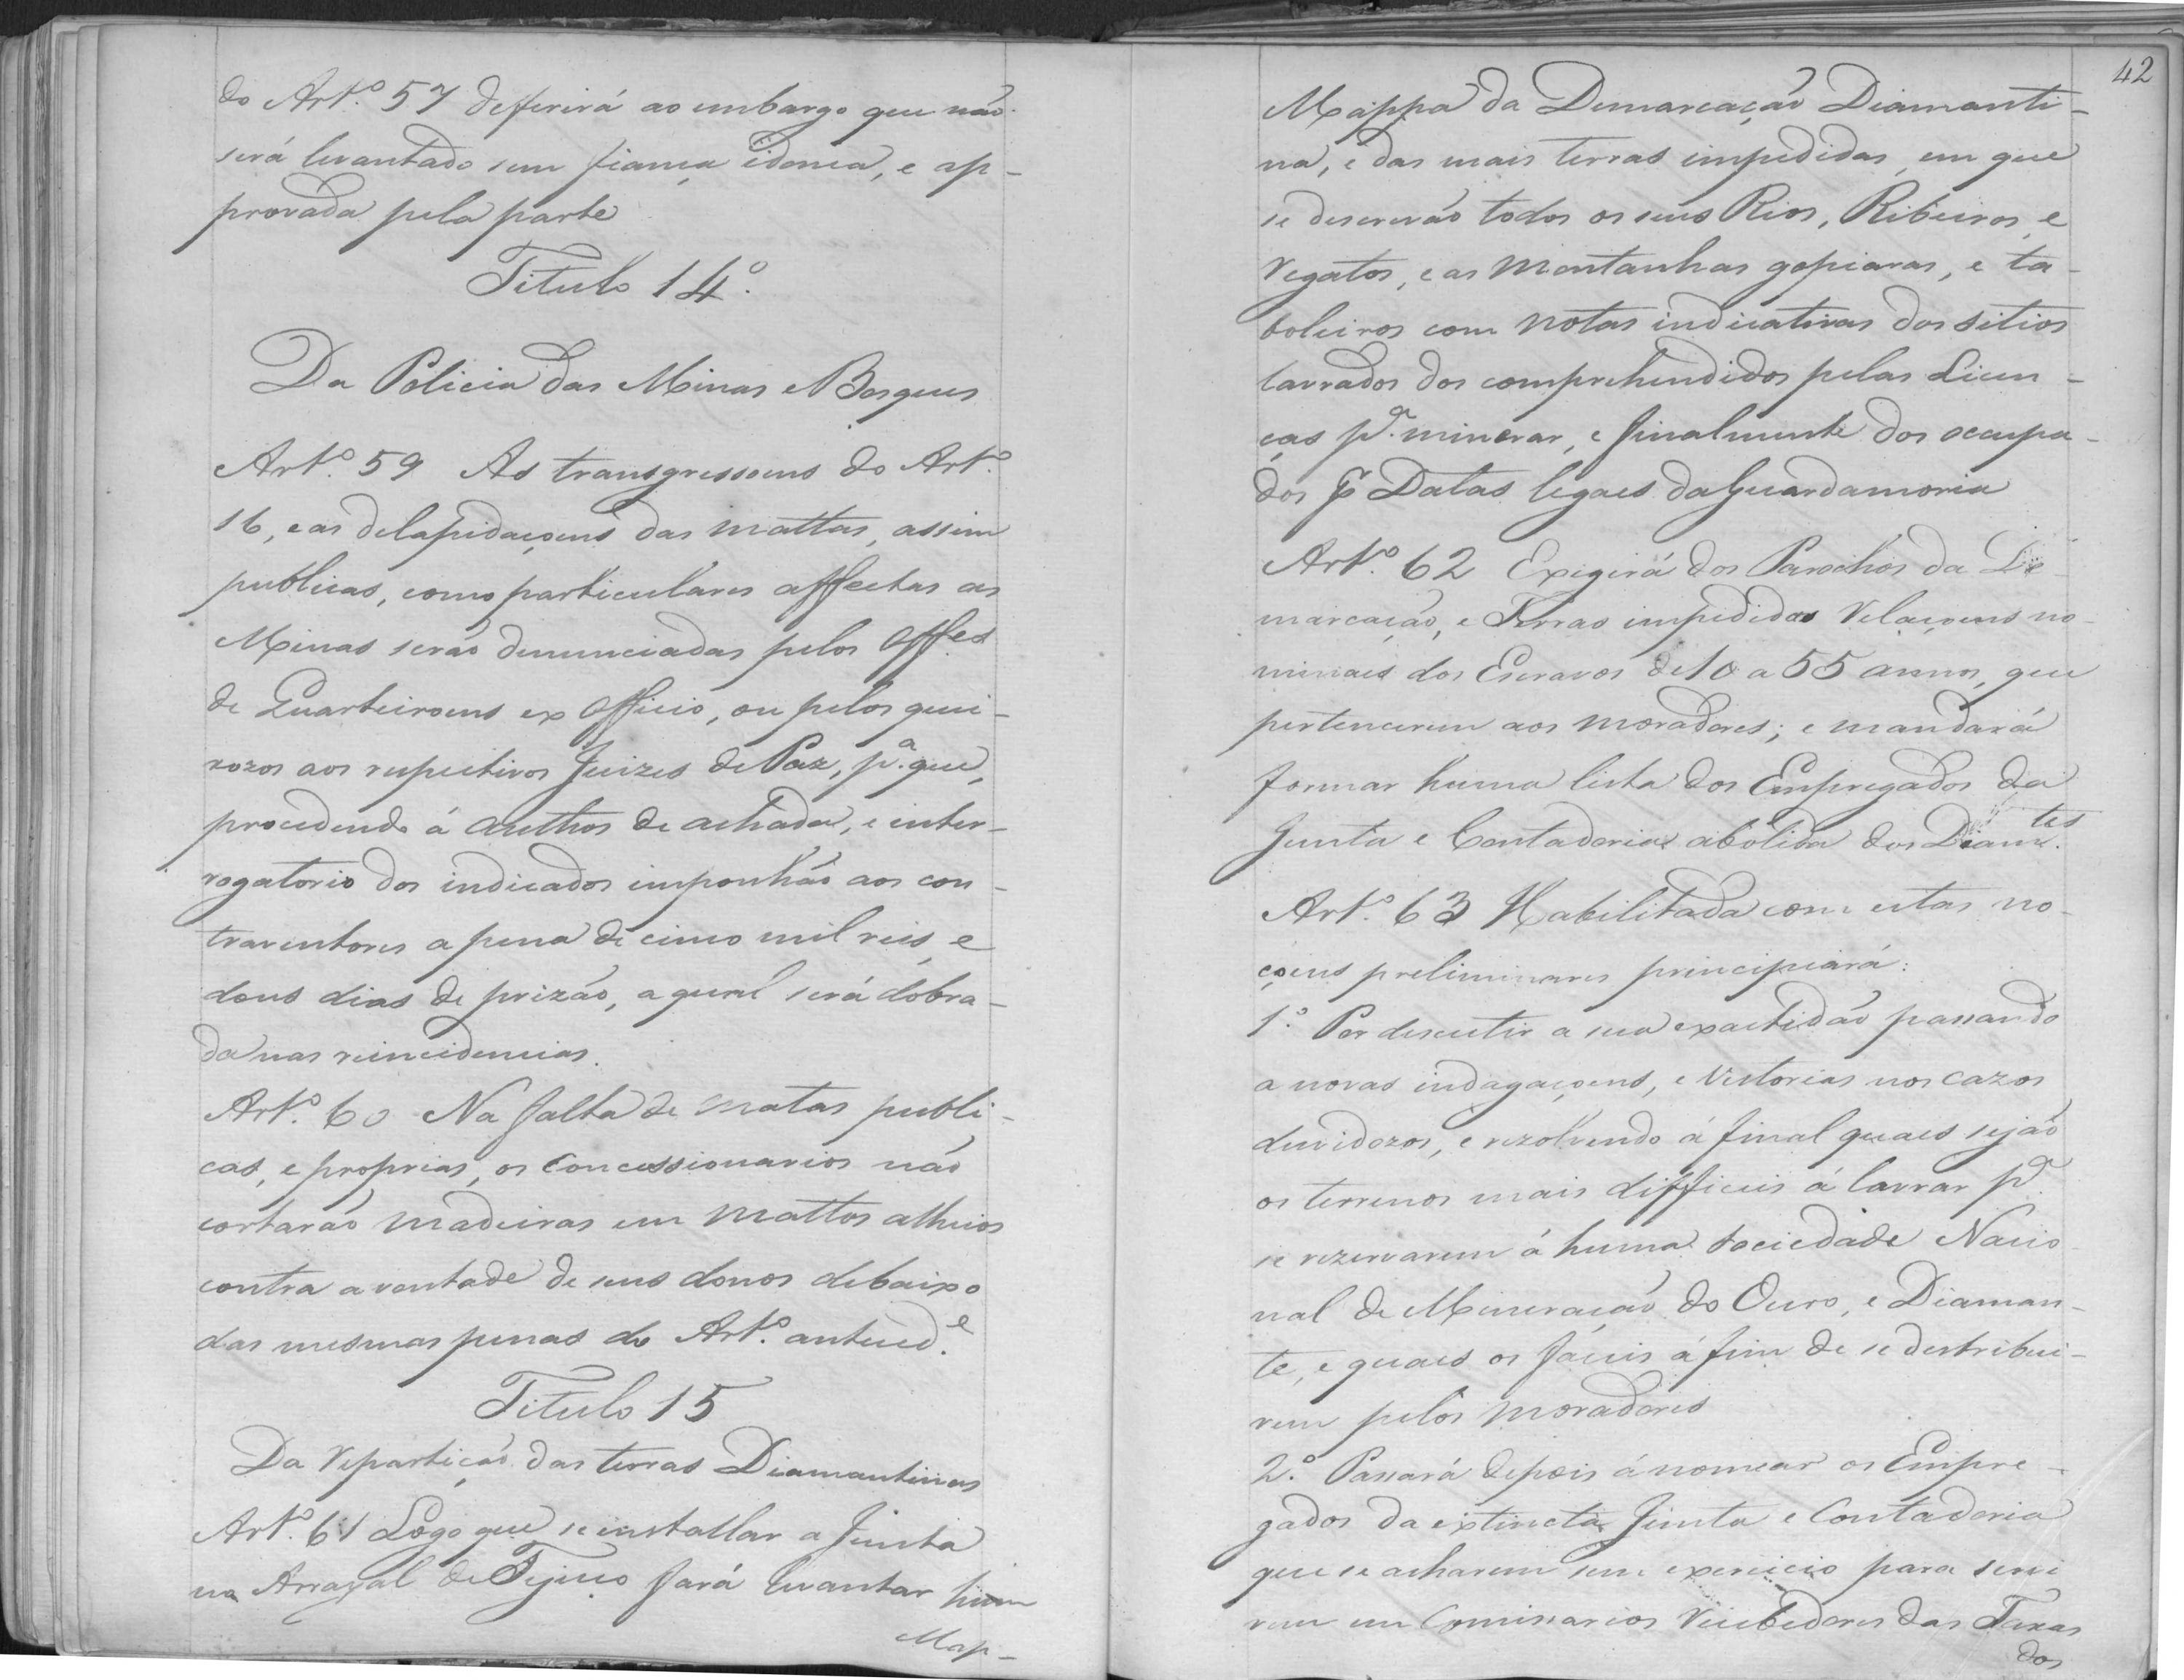 do Artº. 57 defferirá ao embargo que não
será levantado sem fiança idonea, e ap-
provada pela parte
Titulo 14º.
Da Policia das Minas e Bosques
Artº. 59 As transgressoens do Artº.
16, e as delapidaçoens das mattas, assim
publicas, como particulares affectas as
Minas serão denunciadas pelos Offes
de Quarteiroens ex Officio, ou pelos quei-
xozos aos respectivos Juizes de Paz, pª. que,
procedendo á authos de achada, e inter-
rogatorio dos indicados imponhão aos con-
traventores a pena de cinco mil reis, e
dous dias de prizão, a qual será dobra-
da nas reincidencias.
Artº. 60 Na falta de matas publi-
cas, e proprias, os Concessionarios não
cortarão madeiras em mattos alheios
contra a vontade de seus donos debaixo
das mesmas penas do Artº. anteced.e
Titulo 15
Da repartição das terras Diamantinas
Artº. 61 Logo que se installar a Junta
no Arrayal de Tejuco fará levantar hum
Map-
42
Mappa da Demarcação Diamanti-
na, e das mais terras impedidas, em que
se descreverão todos os seus Rios, Ribeiros, e
regatos, e as montanhas gopiaras, e ta-
boleiros com notas indicativas dos sitios
lavrados dos comprehendidos pelas Licen-
ças pª. minerar, e finalmente dos occupa-
dos p Datas legaes da Guardamoria
Artº. 62 Exigirá dos Parochos da De-
marcação, e Terras impedidas relaçoens no-
minaes dos Escravos de 10 a 55 annos, que
pertencerem aos moradores; e mandará
formar huma lista dos Empregados da
Junta e Contadoria abolida dos Diam.tes
Artº. 63 Habilitada com estas no-
çoens preliminares principiará:
1.º Por descutir a sua exactidão passando
a novas indagaçoens, e vestorias nos cazos
duvidozos, e rezolvendo á final quaes sejão
os terrenos mais difficeis á lavrar pª
se rezervarem á huma Sociedade Nacio-
nal de Mineração do Ouro, e Diaman-
te, e quaes os faceis á fim de se destribui-
rem pelos moradores
2.º Passará depois á nomear os Empre-
gados da extincta Junta e Contadoria
que se acharem sem exercicio para servi
rem em Comissarios recebedores das Taxas
dos